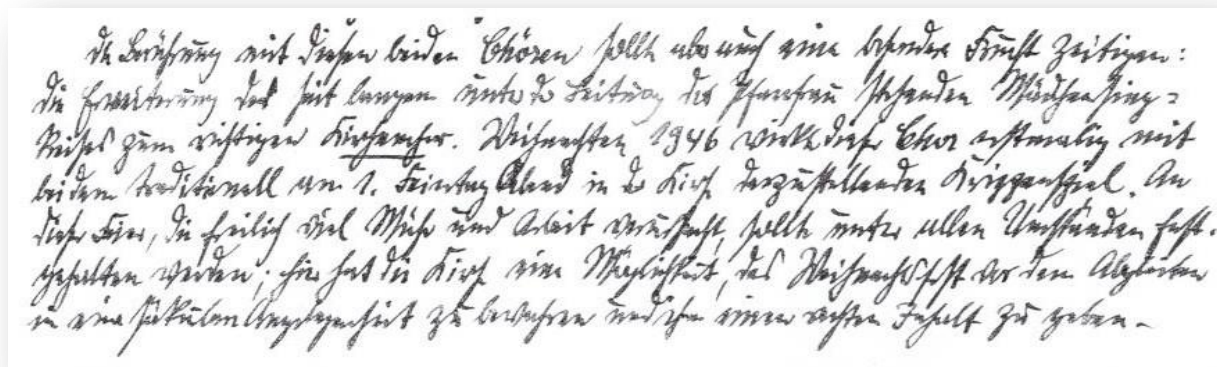 Die Berührung mit diesen beiden Chören sollte aber auch eine besondere Frucht zeitigen:
die Erweiterung des seit langem unter der Leitung der Pfarrfrau stehenden Mädchensing-
kreises zum richtigen Kirchenchor. Weihnachten 1946 wirkte dieser Chor erstmalig mit
bei dem traditionell am 1. Feiertag Abend in der Kirche darzustellenden Krippenspiel. An
dieser Feier, die freilich viel Mühe und Arbeit verursacht, sollte unter allen Umständen fest-
gehalten werden; hier hat die Kirche eine Möglichkeit, das Weihnachtsfest vor dem Abgleiten
in eine säkulare Angelegenheit zu bewahren und ihm einen echten Inhalt zu geben.-